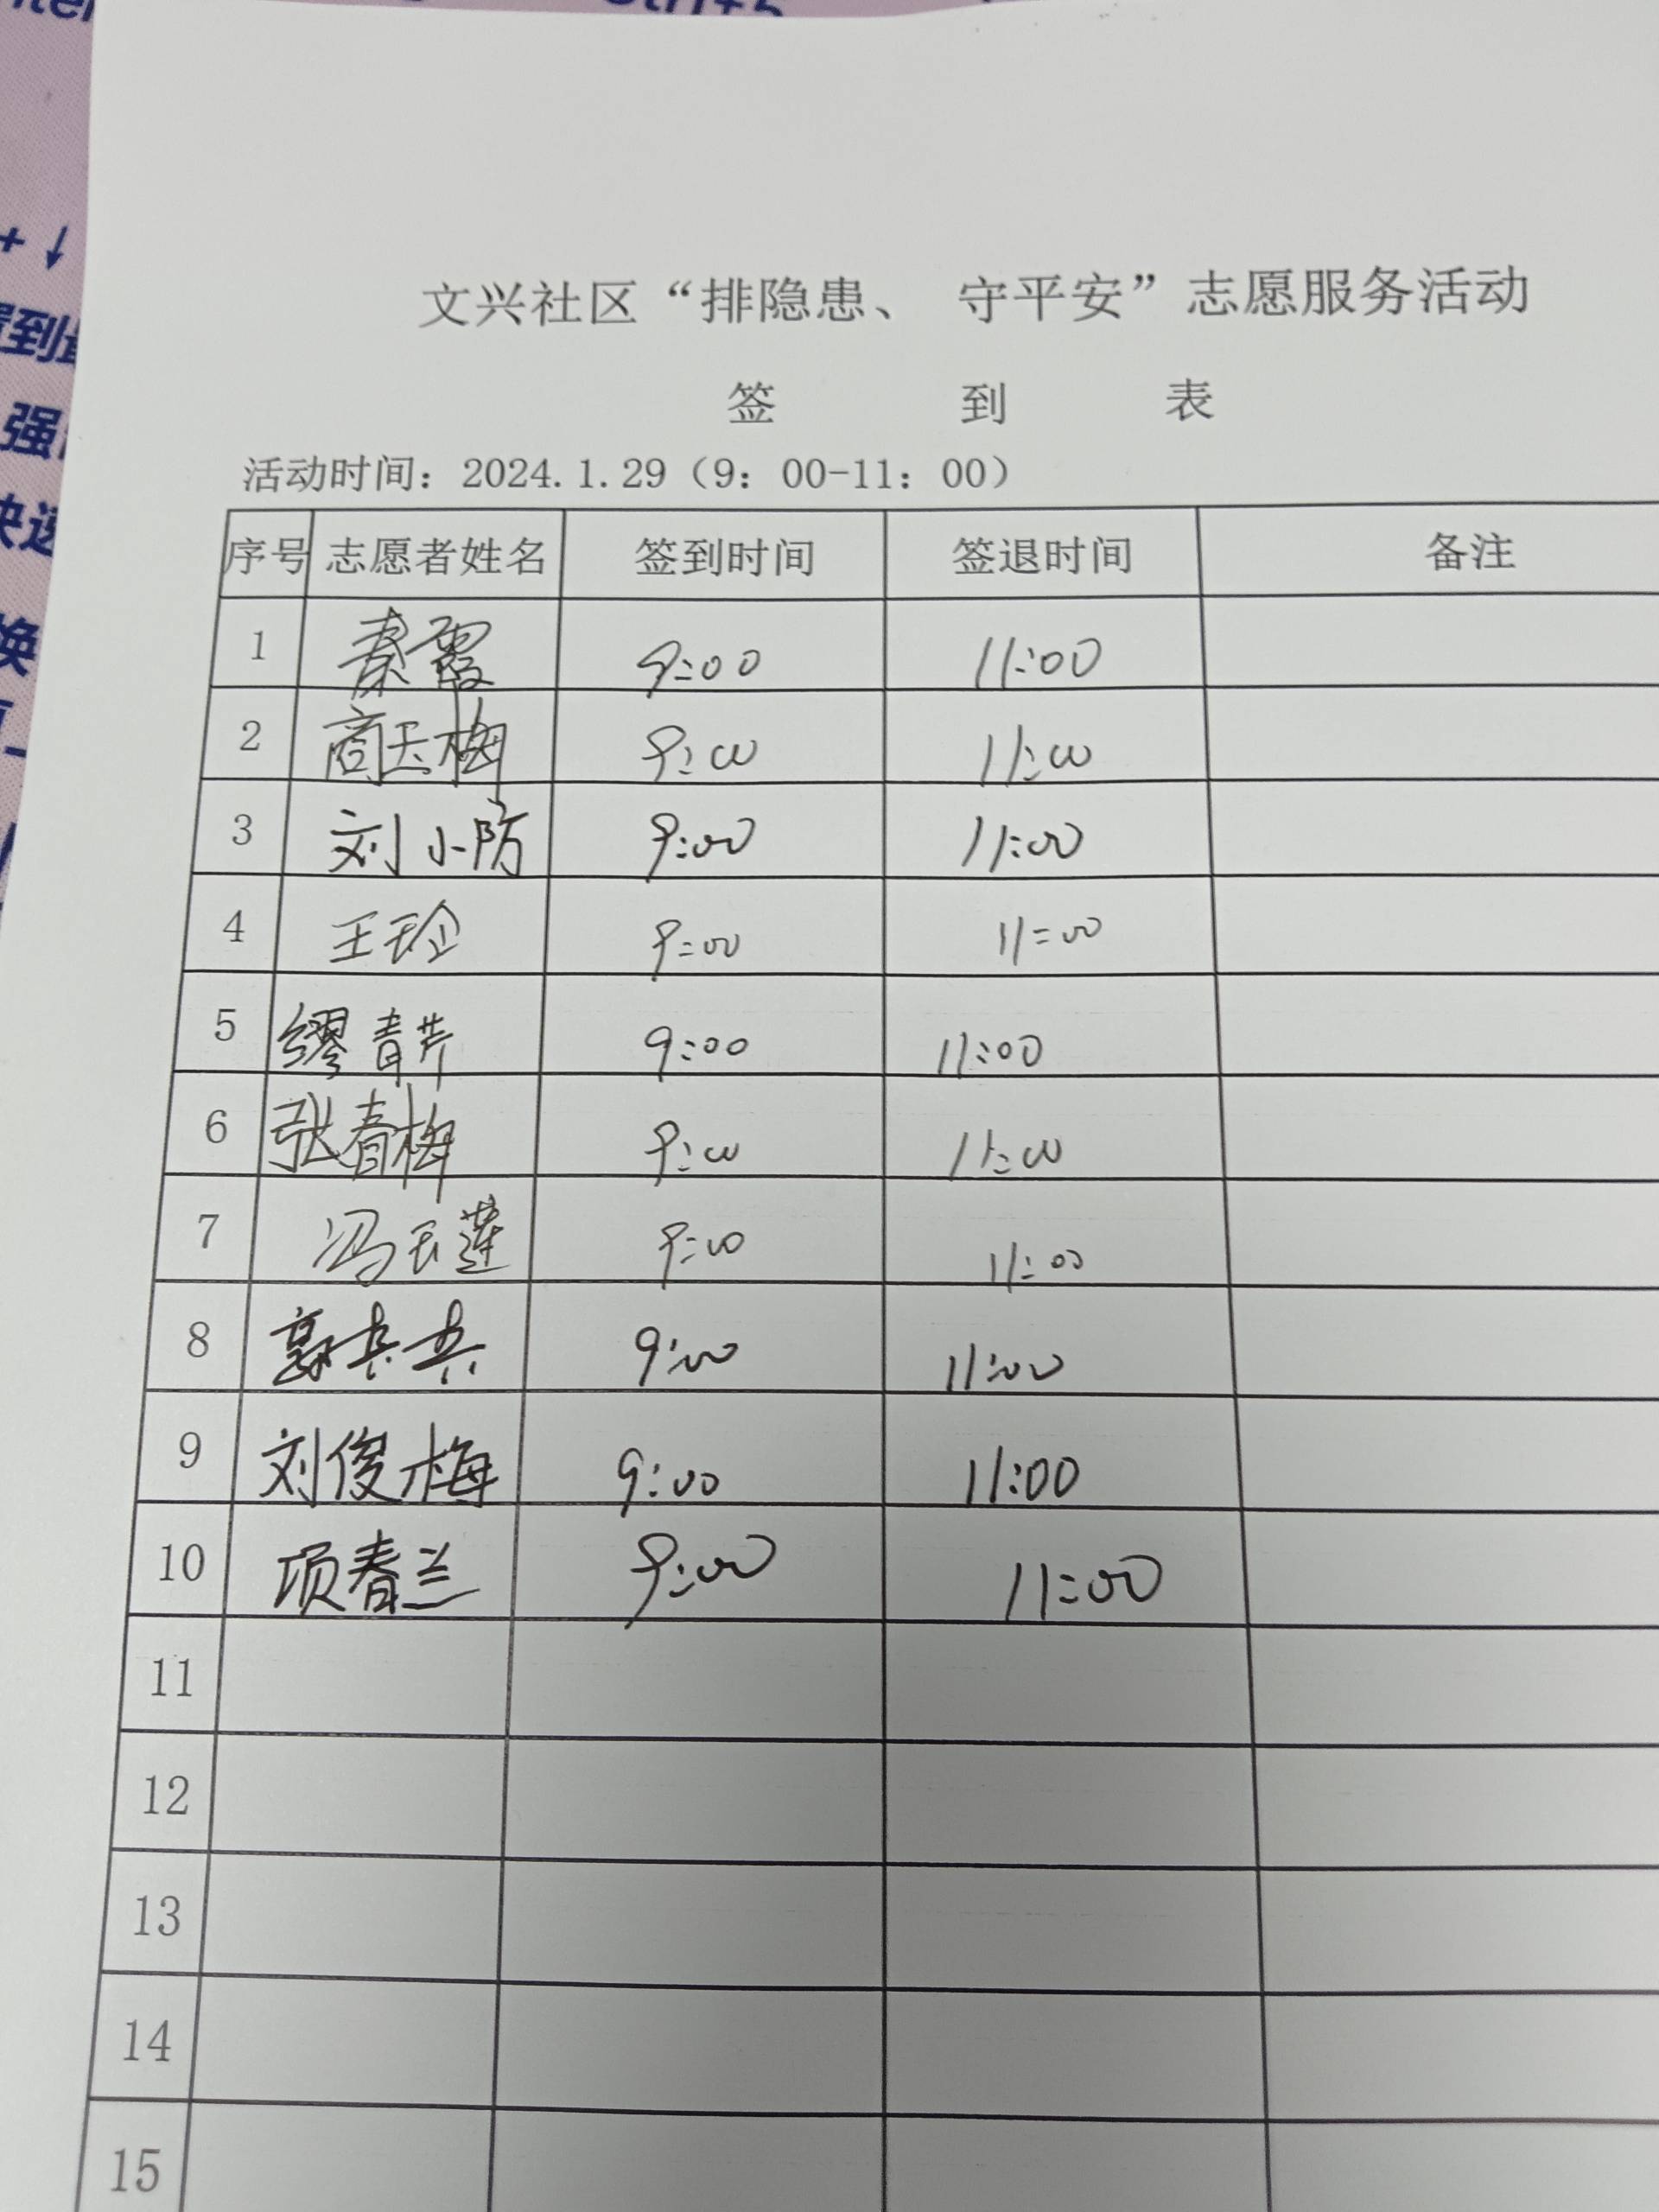 Ctrl+5
+ ↓
强
换
文兴社区“排隐患、 守平安”志愿服务活动
签 到 表
活动时间：2024.1.29（9：00-11：00）
序号 志愿者姓名 签到时间 签退时间 备注
1 秦霞 9:00 11:00
2 商玉梅 9:00 11:00
3 刘小防 9:00 11:00
4 王玲 9:00 11:00
5 缪青芹 9:00 11:00
6 张春梅 9:00 11:00
7 冯玉莲 9:00 11:00
8 郭兵兵 9:00 11:00
9 刘俊梅 9:00 11:00
10 项春兰 9:00 11:00
11
12
13
14
15